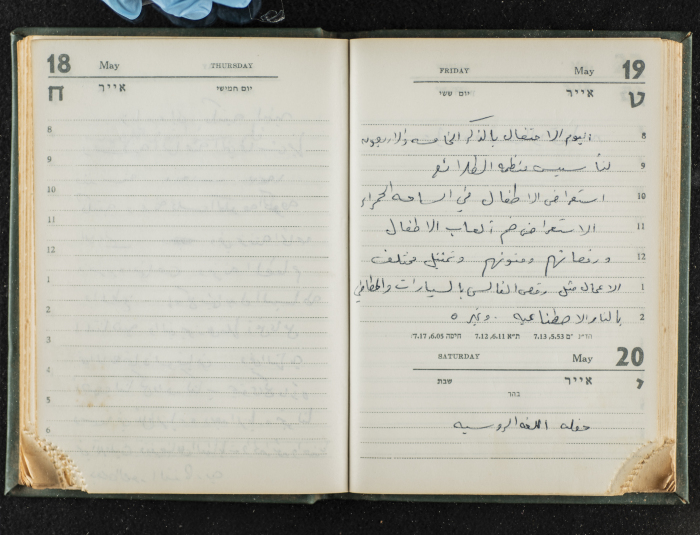 18 May THURSDAY
ח אייר יום חמישי
8
9
10
11
12
1
2
3
4
5
6
FRIDAY May 19
יום ששי אייר ט
8 اليوم الاحتفال بالذكرى الخامسه والاربعون
9 لتأسيس منظمه الطلائع
10 استعراض الاطفال في الساحه الحمراء
11 الاستعراض ضم العاب الاطفال
12 ورقصاتهم وفنونهم وتمثيل مختلف
1 الاعمال مثل رقص الفالس بالسيارات والمطافي
2 بالنار الاصطناعيه وغيره
הד״נ ים 5.53, 7.13 ת״א 6.11, 7.12 חיפה 6.05, 7.17
SATURDAY May 20
שבת אייר י
בהר
حفله اللغه الروسيه